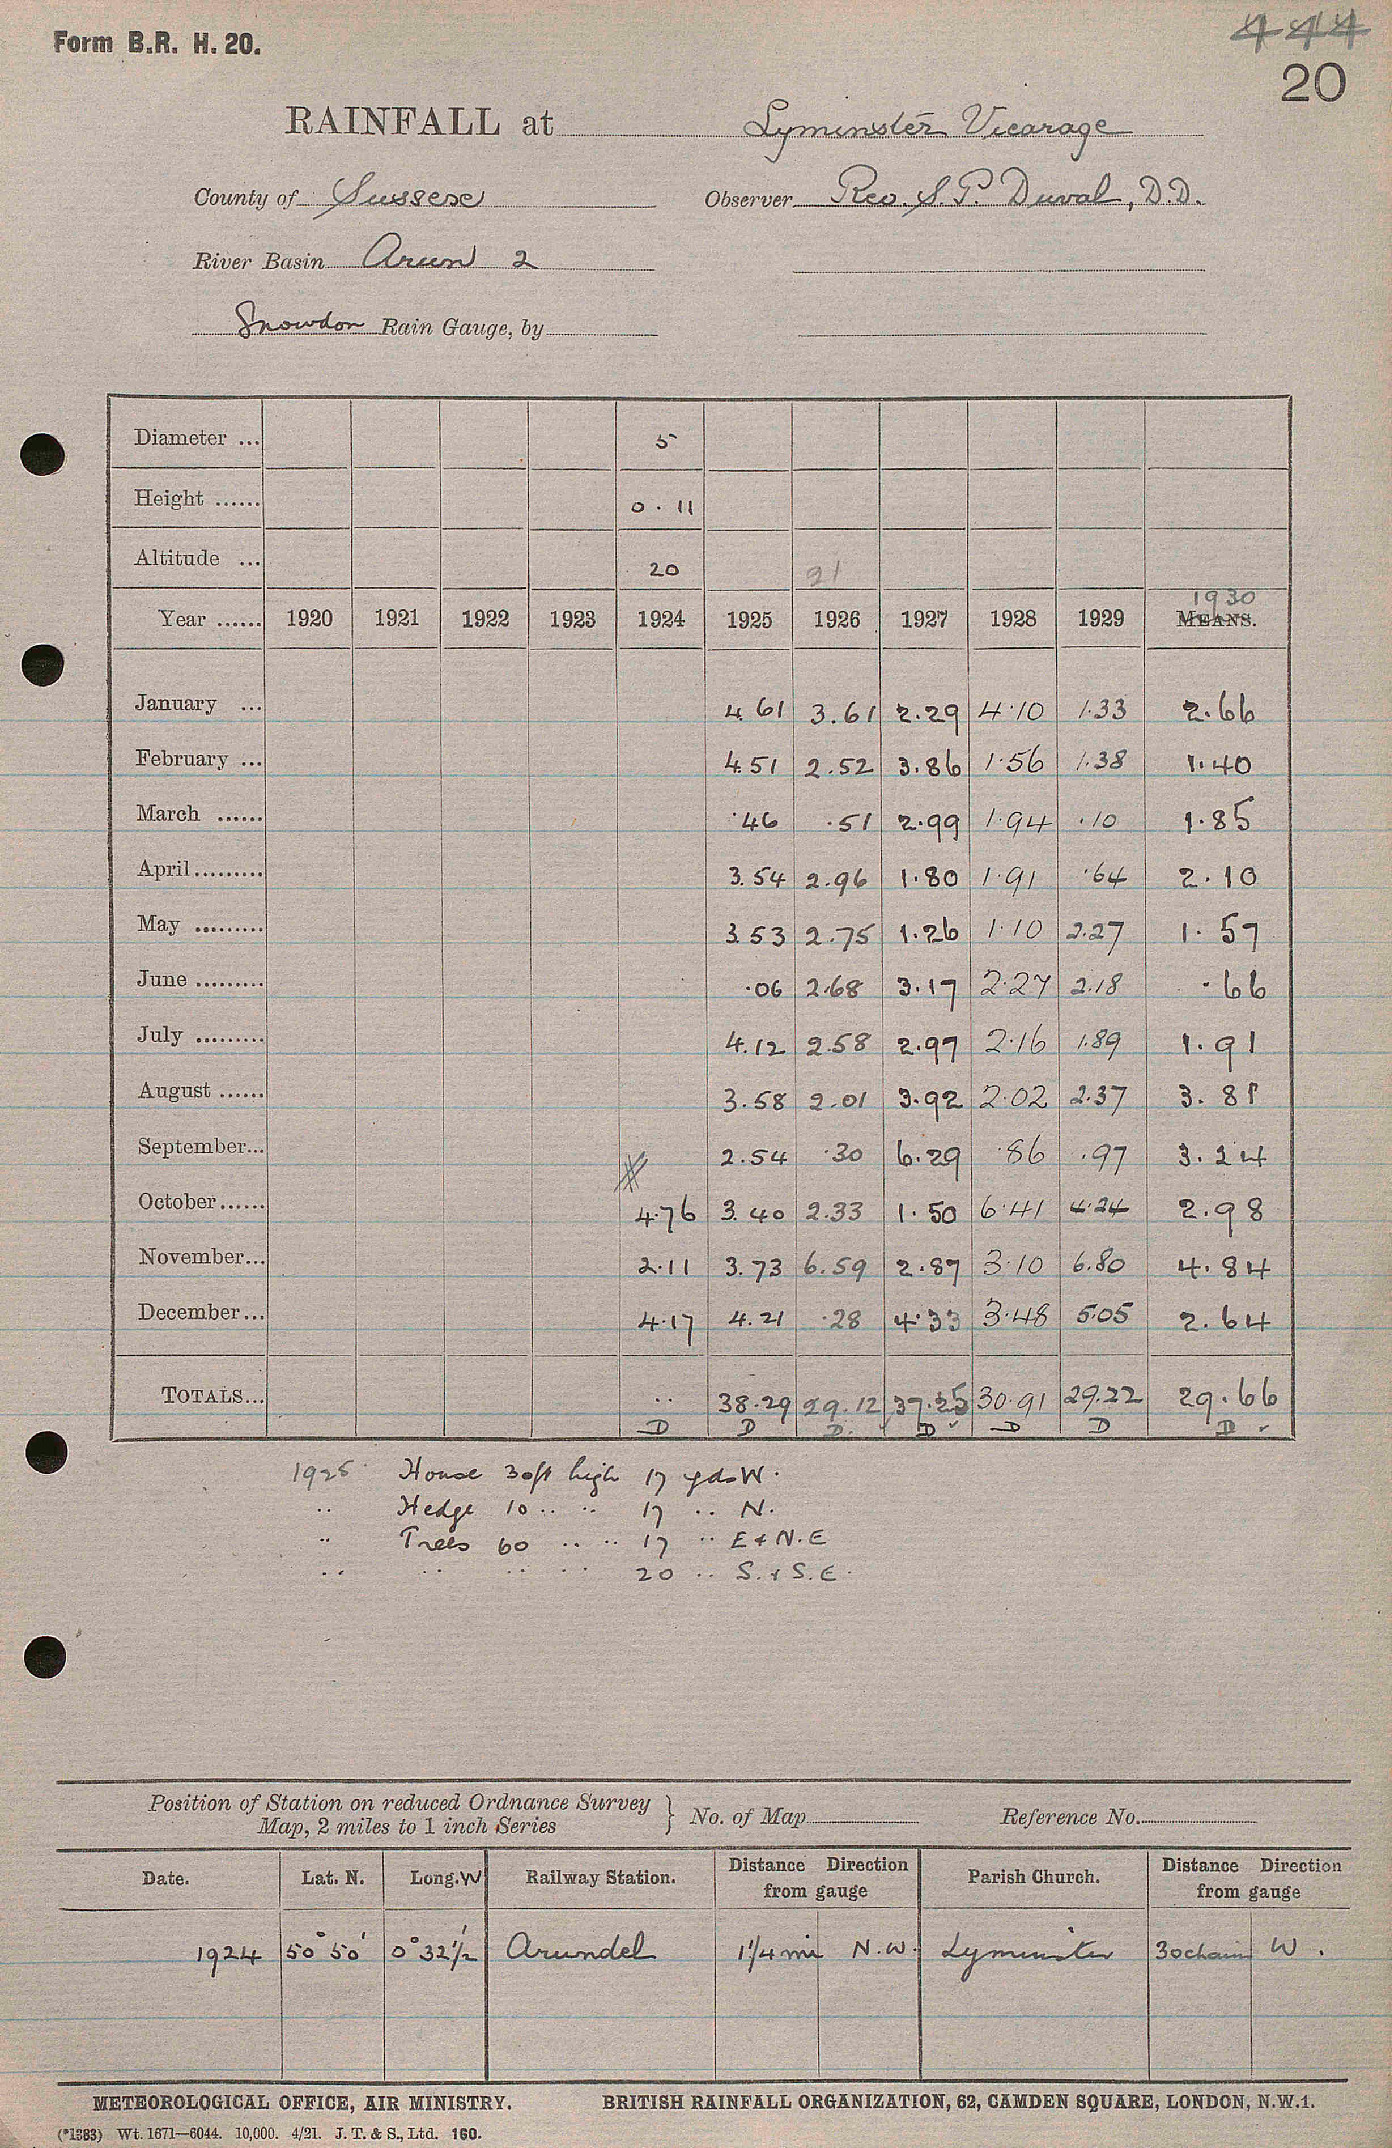 Form B.R. H. 20.
444
20
RAINFALL at Lyminster Vicarage
County of Sussex Observer Rev. S. P. Duval, D.D.
River Basin Arun 2
Snowdon Rain Gauge, by
Diameter ... 5
Height ...... 0.11
Altitude ... 20 21
1930
Year ...... 1920 1921 1922 1923 1924 1925 1926 1927 1928 1929 MEANS.
January ... 4.61 3.61 2.29 4.10 1.33 2.66
February ... 4.51 2.52 3.86 1.56 1.38 1.40
March ...... .46 .51 2.99 1.94 .10 1.85
April ......... 3.54 2.96 1.80 1.91 .64 2.10
May ......... 3.53 2.75 1.26 1.10 2.27 1.57
June ......... .06 2.68 3.17 2.27 2.18 .66
July ......... 4.12 2.58 2.97 2.16 1.89 1.91
August ...... 3.58 2.01 3.92 2.02 2.37 3.81
September... 2.54 .30 6.29 .86 .97 3.24
October...... 4.76 3.40 2.33 1.50 6.41 4.24 2.98
November... 2.11 3.73 6.59 2.87 3.10 6.80 4.84
December... 4.17 4.21 .28 4.33 3.48 5.05 2.64
TOTALS... .. 38.29 29.12 37.25 30.91 29.22 29.66
D D D. D D D D
1925 House 30ft high 17 yds W.
.. Hedge 10 .. .. 17 .. N.
.. Trees 60 .. .. 17 .. E & N.E
.. .. .. .. 20 .. S. & S.E.
Position of Station on reduced Ordnance Survey
Map, 2 miles to 1 inch Series } No. of Map Reference No.
Date. Lat. N. Long. W Railway Station. Distance Direction from gauge Parish Church. Distance Direction from gauge
1924 50° 50' 0° 32½' Arundel 1¼ mi N.W. Lyminster 30 chains W.
METEOROLOGICAL OFFICE, AIR MINISTRY. BRITISH RAINFALL ORGANIZATION, 62, CAMDEN SQUARE, LONDON, N.W.1.
(*1383) Wt. 1671—6044. 10,000. 4/21. J. T. & S., Ltd. 160.